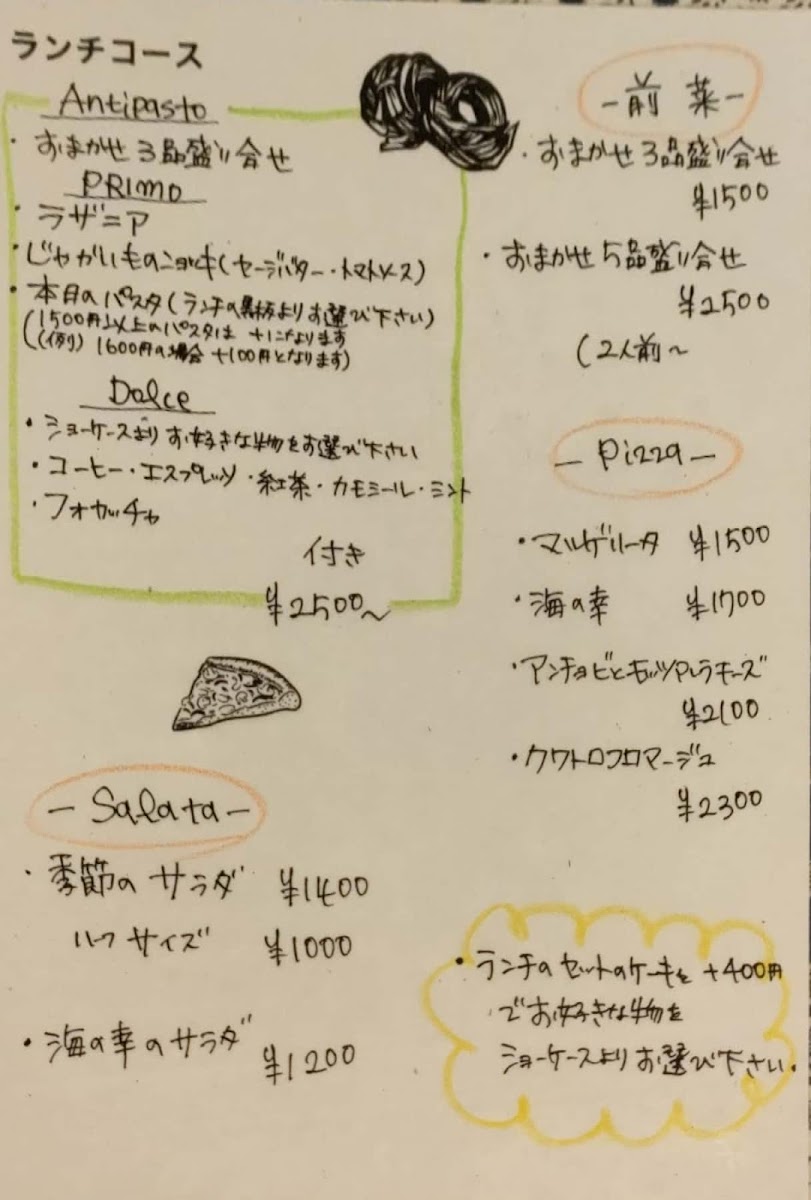 ランチコース
Antipasto
・おまかせ3品盛り合せ
PRIMO
・ラザニア
・じゃがいものニョッキ(セージバター・トマトソース)
・本日のパスタ(ランチの黒板よりお選び下さい)
(1500円以上のパスタは +になります
((例) 1600円の場合 +100円となります)
Dolce
・ショーケースよりお好きな物をお選び下さい
・コーヒー・エスプレッソ・紅茶・カモミール・ミント
・フォカッチャ
付き
¥2500~
-Salata-
・季節のサラダ ¥1400
ハーフサイズ ¥1000
・海の幸のサラダ
¥1200
-前菜-
・おまかせ3品盛り合せ
¥1500
・おまかせ5品盛り合せ
¥2500
(2人前~
-Pizza-
・マルゲリータ ¥1500
・海の幸 ¥1700
・アンチョビとモッツアレラチーズ
¥2100
・クワトロフロマージュ
¥2300
・ランチのセットのケーキを +400円
でお好きな物を
ショーケースよりお選び下さい。